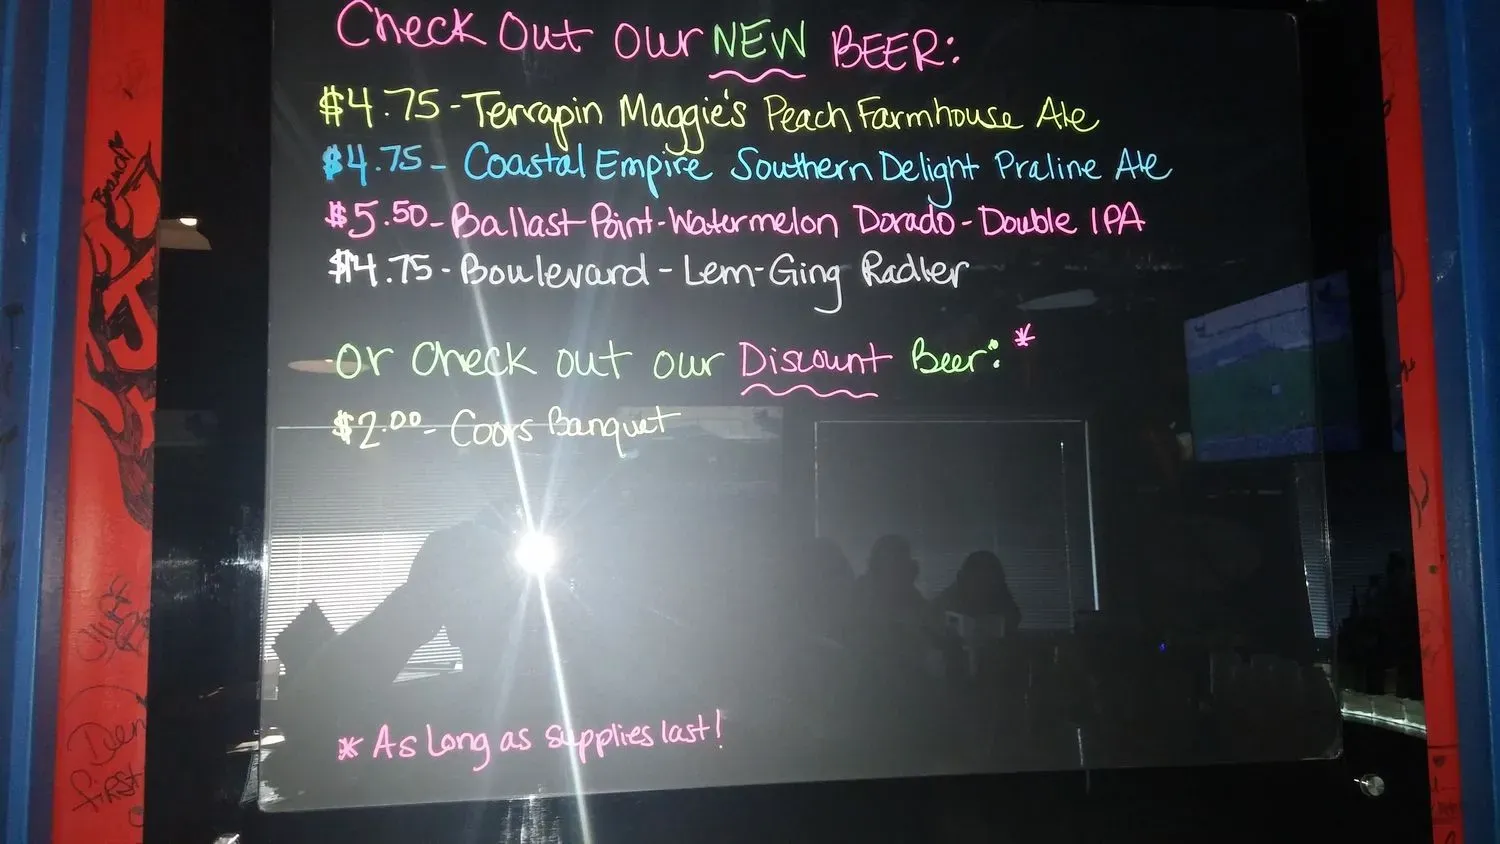 Check Out Our NEW BEER:
$4.75 - Terrapin Maggie's Peach Farmhouse Ale
$4.75 - Coastal Empire Southern Delight Praline Ale
$5.50 - Ballast Point - Watermelon Dorado - Double IPA
$4.75 - Boulevard - Lem-Ging Radler
Or check out our Discount Beer: *
$2.00 - Coors Banquet
* As long as supplies last!
first